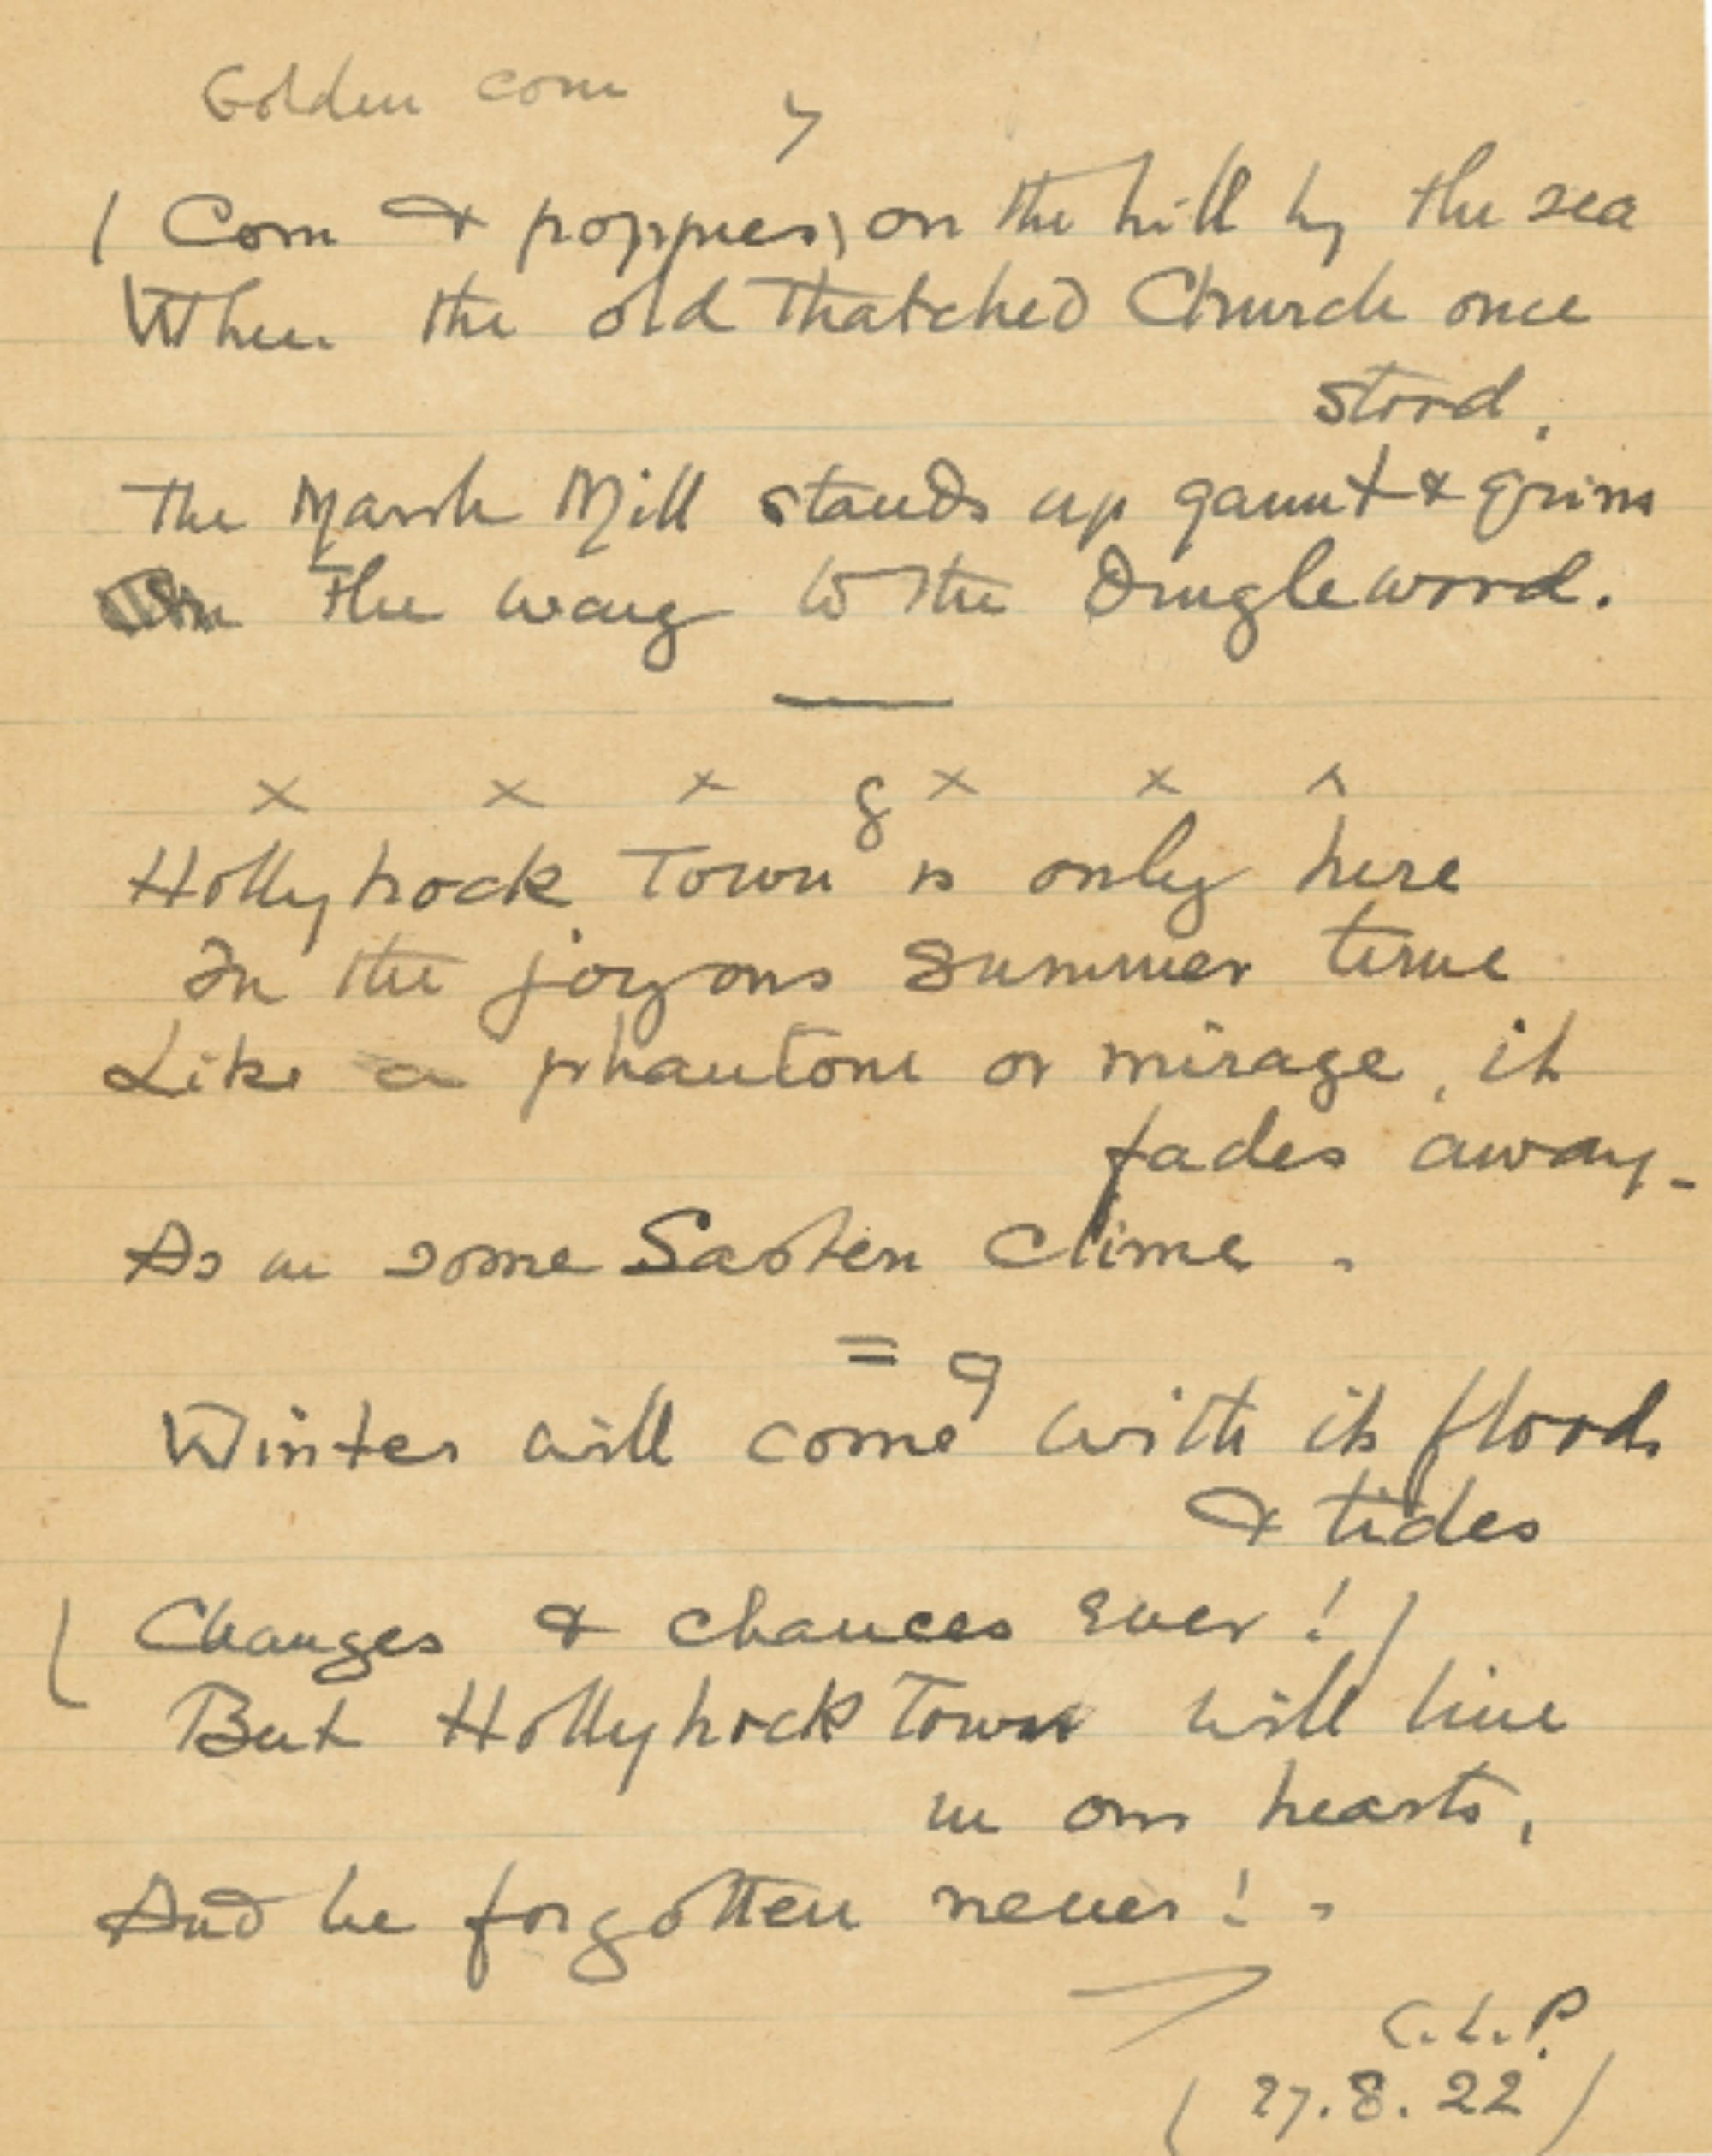 Golden corn 7
( Corn & poppies) on the hill by the sea
Where the old thatched Church once
stood,
The Marsh Mill stands up gaunt & grim
On the way to the Dinglewood.
—
x x x 8 x x x
Hollyhock Town is only here
In the joyous summer time
Like a phantom or mirage, it
fades away -
As in some Eastern clime .
= 9
Winter will come with its floods
& tides
( Changes & chances ever! )
But Hollyhock Town will live
in our hearts,
And be forgotten never! .
C.L.P.
( 27.8.22 )